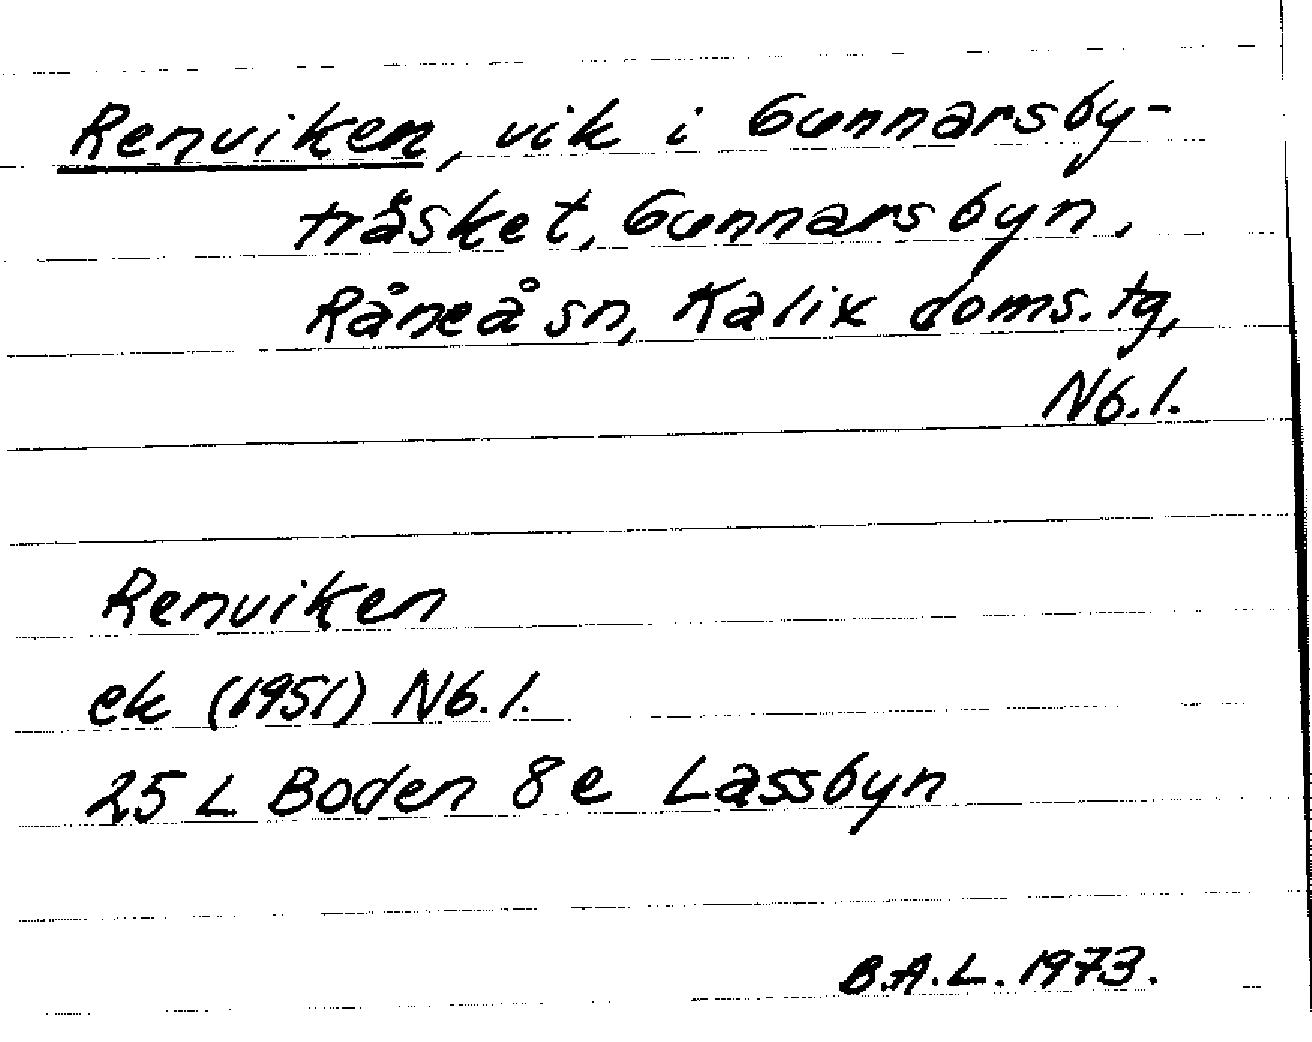 Renviken, vik i Gunnarsby-
träsket, Gunnarsbyn,
Råneå sn, Kalix doms. tg,
Nb. l.
Renviken
ek (1951) Nb. l.
25 L Boden 8e Lassbyn
B.A.L. 1973.